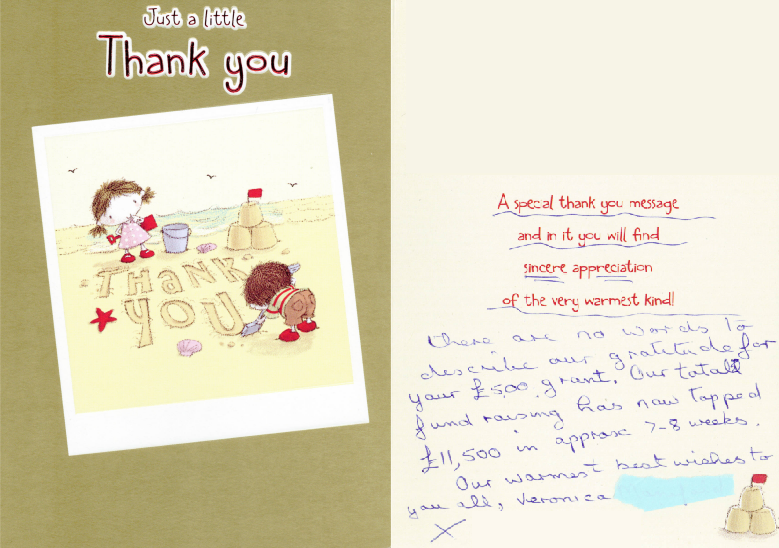 Just a little
Thank you
THANK
YOU
A special thank you message
and in it you will find
sincere appreciation
of the very warmest kind!
there are no words to
describe our gratitude for
your £500 grant. Our total
fund raising has now topped
£11,500 in approx 7-8 weeks.
Our warmest best wishes to
you all, Veronica
X